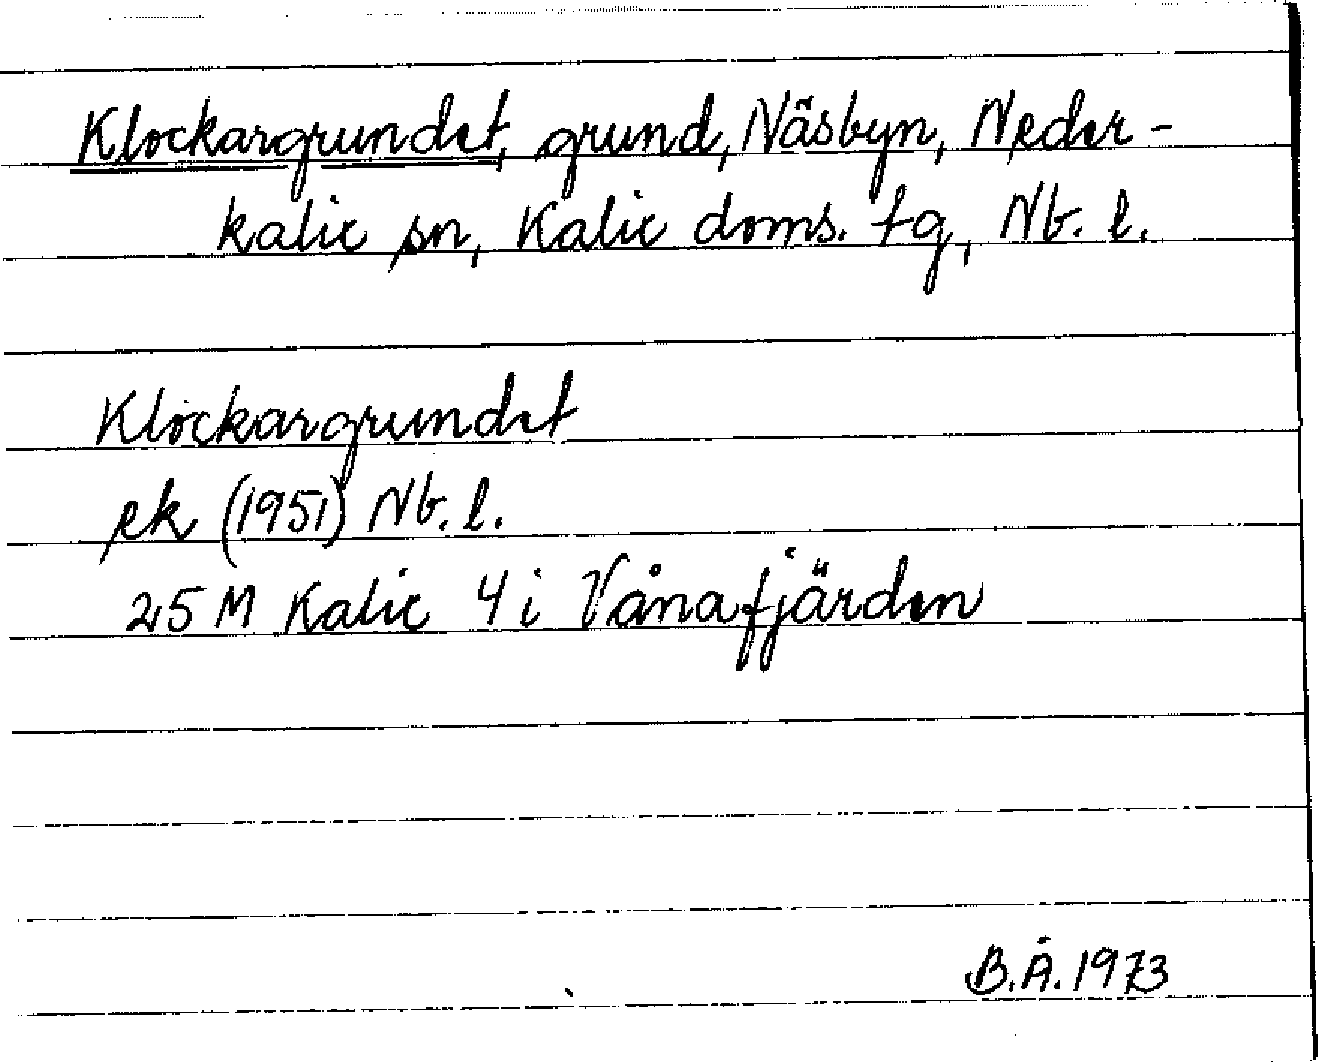 Klockargrundet, grund, Näsbyn, Neder-
kalix sn, Kalix doms. tg, Nb. l.
Klockargrundet
ek (1951) Nb. l.
25 M Kalix 4 i Vånafjärden
B.Å. 1973